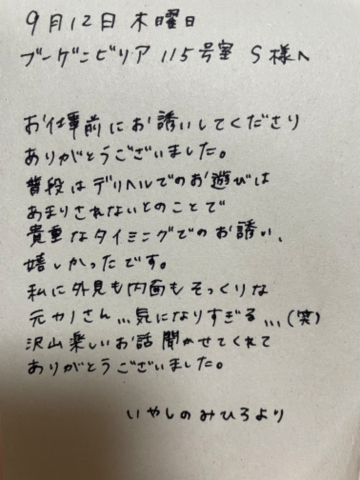 9月12日 木曜日
ブーゲンビリア 115号室 S様へ
お仕事前にお誘いしてくださり
ありがとうございました。
普段はデリヘルでのお遊びは
あまりされないとのことで
貴重なタイミングでのお誘い、
嬉しかったです。
私に外見も内面もそっくりな
元カノさん...気になりすぎる...(笑)
沢山楽しいお話聞かせてくれて
ありがとうございました。
いやしのみひろより